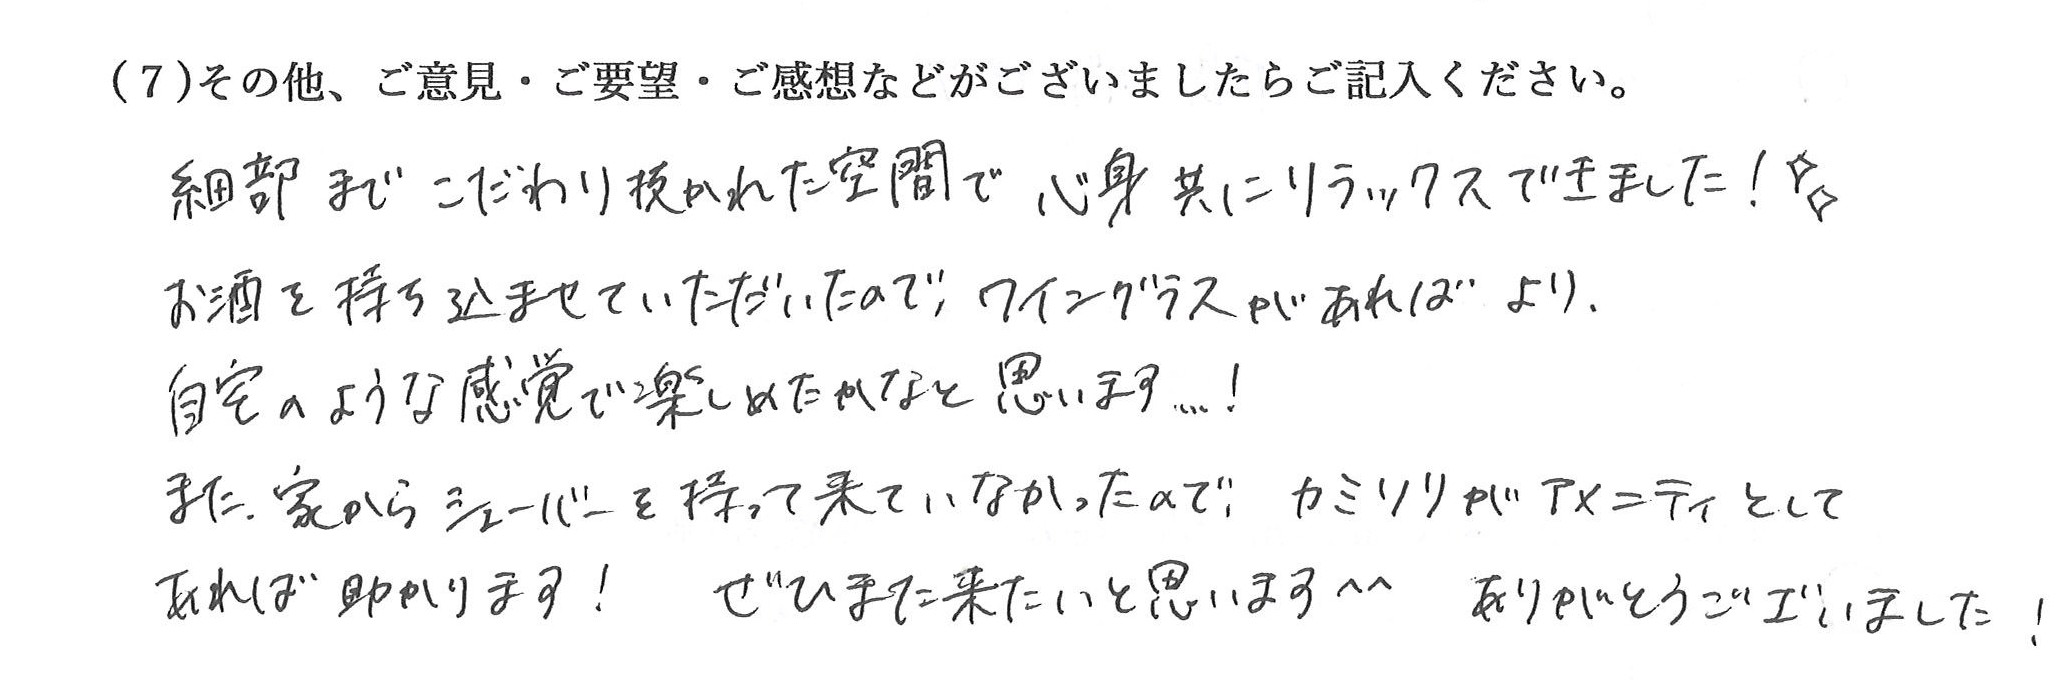 (7)その他、ご意見・ご要望・ご感想などがございましたらご記入ください。
細部までこだわり抜かれた空間で心身共にリラックスできました！
お酒を持ち込ませていただいたので、ワイングラスがあればより、
自宅のような感覚で楽しめたかなと思います…！
また、家からシェーバーを持って来ていなかったので、カミソリがアメニティとして
あれば助かります！ ぜひまた来たいと思います^^ ありがとうございました！